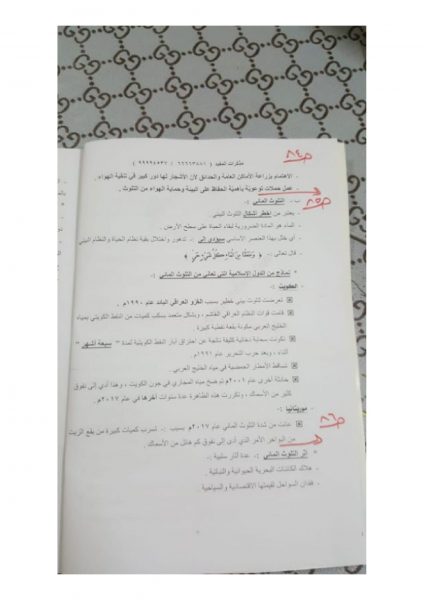 مذكرات المفيد ( ٦٦٦٦٣٨٨١ / ٩٩٩٢٤٥٤٢٧ )
ص٨٤
- الاهتمام بزراعة الأماكن العامة والحدائق لأن الأشجار لها دور كبير في تنقية الهواء .
- عمل حملات توعوية بأهمية الحفاظ على البيئة وحماية الهواء من التلوث .
ص٨٥
ب - التلوث المائي :-
- يعتبر من أخطر أشكال التلوث البيئي
- الماء هو المادة الضرورية لبقاء الحياة على سطح الأرض .
- أي خلل بهذا العنصر الأساسي سيؤدي إلى :- تدهور واختلال بقية نظام الحياة والنظام البيئي
- قال تعالى :- ﴿ وَجَعَلْنَا مِنَ الْمَاءِ كُلَّ شَيْءٍ حَيٍّ ﴾
* نماذج من الدول الإسلامية التي تعاني من التلوث المائي :-
- الكويت :-
تعرضت لتلوث بيئي خطير بسبب الغزو العراقي البائد عام ١٩٩٠م .
قامت قوات النظام العراقي الغاشم ، وبشكل متعمد بسكب كميات من النفط الكويتي بمياه
الخليج العربي مكونة بقعة نفطية كبيرة
تكونت سحابة دخانية كثيفة ناتجة عن احتراق آبار النفط الكويتية لمدة " سبعة أشهر "
أثناء ، وبعد حرب التحرير عام ١٩٩١م .
تساقط الأمطار الحمضية في مياه الخليج العربي .
حادثة أخرى عام ٢٠٠١م تم ضخ مياه المجاري في جون الكويت ، وهذا أدى إلى نفوق
كثير من الأسماك ، وتكررت هذه الظاهرة عدة سنوات آخرها في عام ٢٠١٧م .
ص٨٦
- موريتانيا :-
عانت من شدة التلوث المائي عام ٢٠١٧م بسبب :- تسرب كميات كبيرة من بقع الزيت
من البواخر الأمر الذي أدى إلى نفوق كم هائل من الأسماك .
* أثر التلوث المائي :- عدة آثار سلبية :-
- هلاك الكائنات البحرية الحيوانية والنباتية .
- فقدان السواحل لقيمتها الاقتصادية والسياحية .